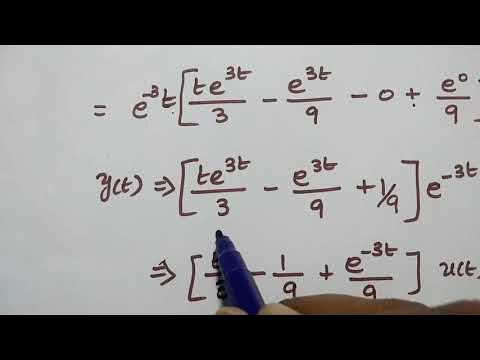 = e^{-3t} [ te^{3t}/3 - e^{3t}/9 - 0 + e^0/9 ]
y(t) ⇒ [ te^{3t}/3 - e^{3t}/9 + 1/9 ] e^{-3t}
⇒ [ - 1/9 + e^{-3t}/9 ] u(t)